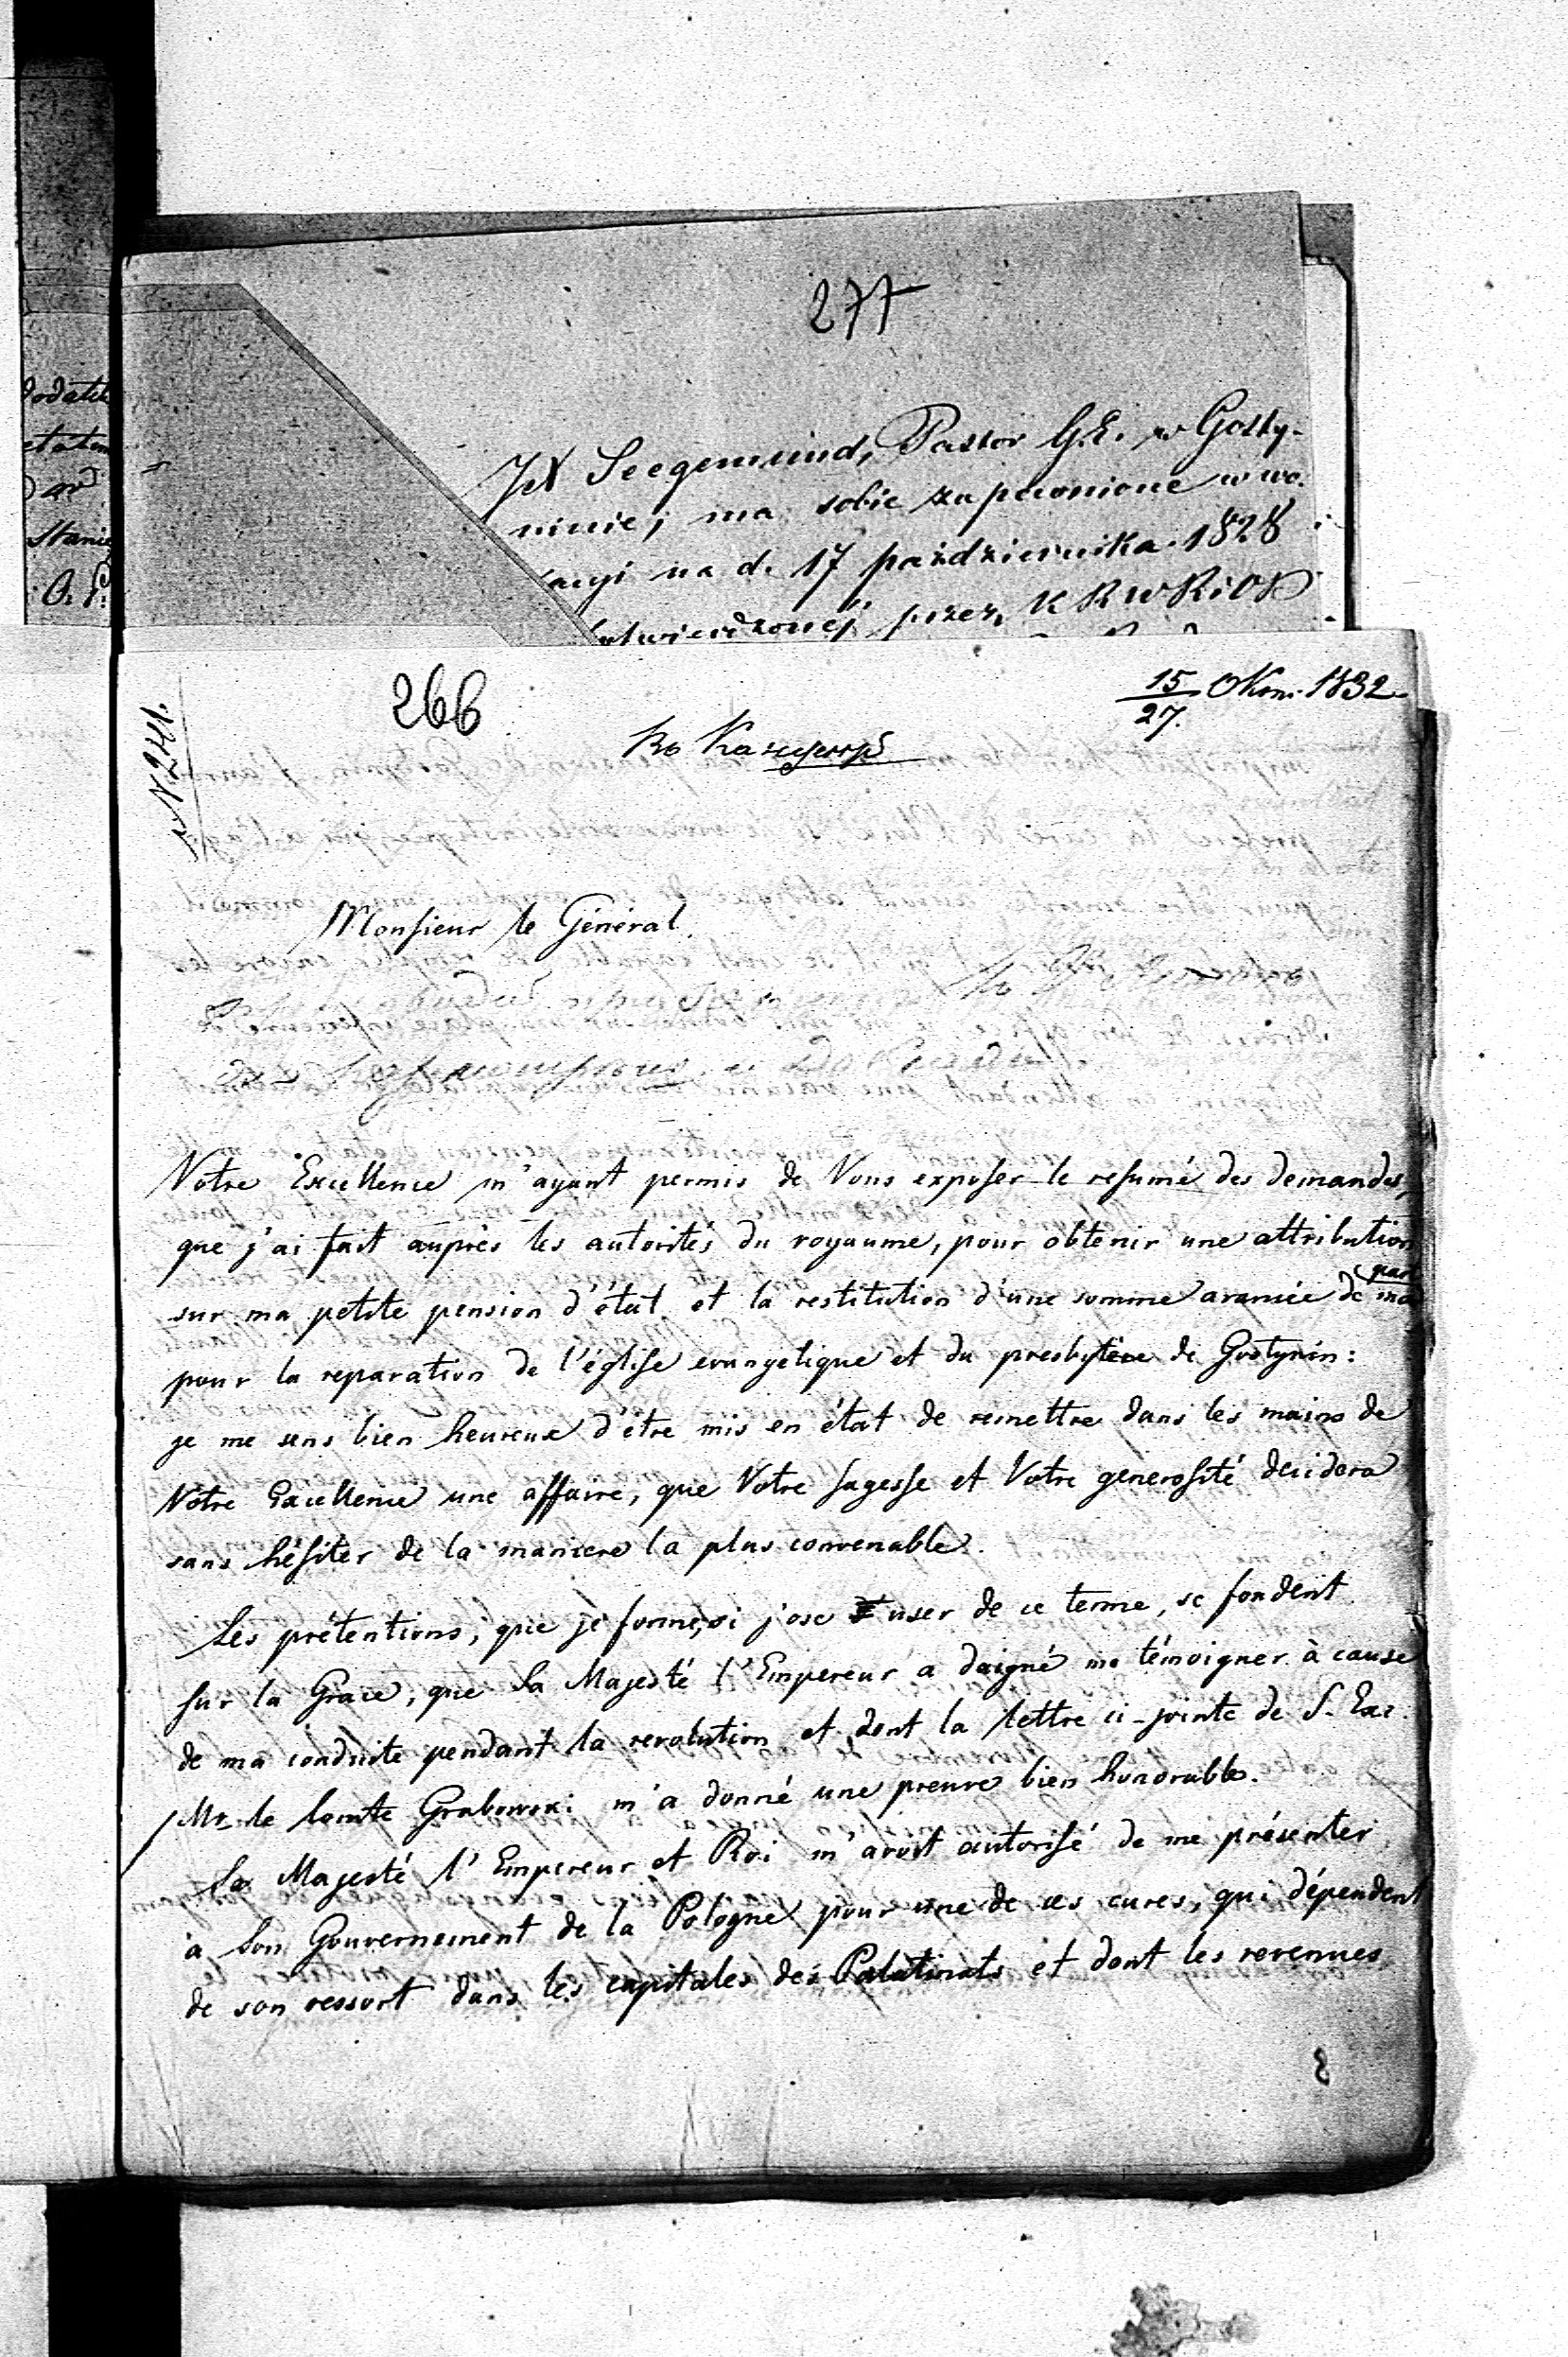 277
JX Seegemund, Pastor G.E. w Gosty-
ninie, ma sobie zapewnione w wo-
kacyi na d. 17 października 1828
potwierdzonej przez KRWRiOP
dodatk
etatem
Stanie
O. P.
266
15/27. Окт. 1832
N. 241.
Monsieur le Général
Votre Excellence m'ayant permis de Vous exposer le resumé des demandes,
que j'ai fait auprès les autorités du royaume, pour obtenir une attribution
sur ma petite pension d'état et la restitution d'une somme avancée de ma
part
pour la reparation de l'église evangelique et du presbytère de Gostynin:
je me sens bien heureux d'être mis en état de remettre dans les mains de
Votre Excellence une affaire, que Votre sagesse et Votre generosité decidera
sans hésiter de la maniere la plus convenable.
Les prétentions, que je forme, si j'ose user de ce terme, se fondent
sur la Grace, que Sa Majesté l'Empereur a daigné me témoigner à cause
de ma conduite pendant la revolution et dont la lettre ci-jointe de S. Exc.
Mr. le Comte Grabowski m'a donné une preuve bien honorable.
Sa Majesté l'Empereur et Roi m'avoit autorisé de me présenter
à Son Gouvernement de la Pologne pour une de ces cures, qui dépendent
de son ressort dans les capitales des Palatinats et dont les revenues
8